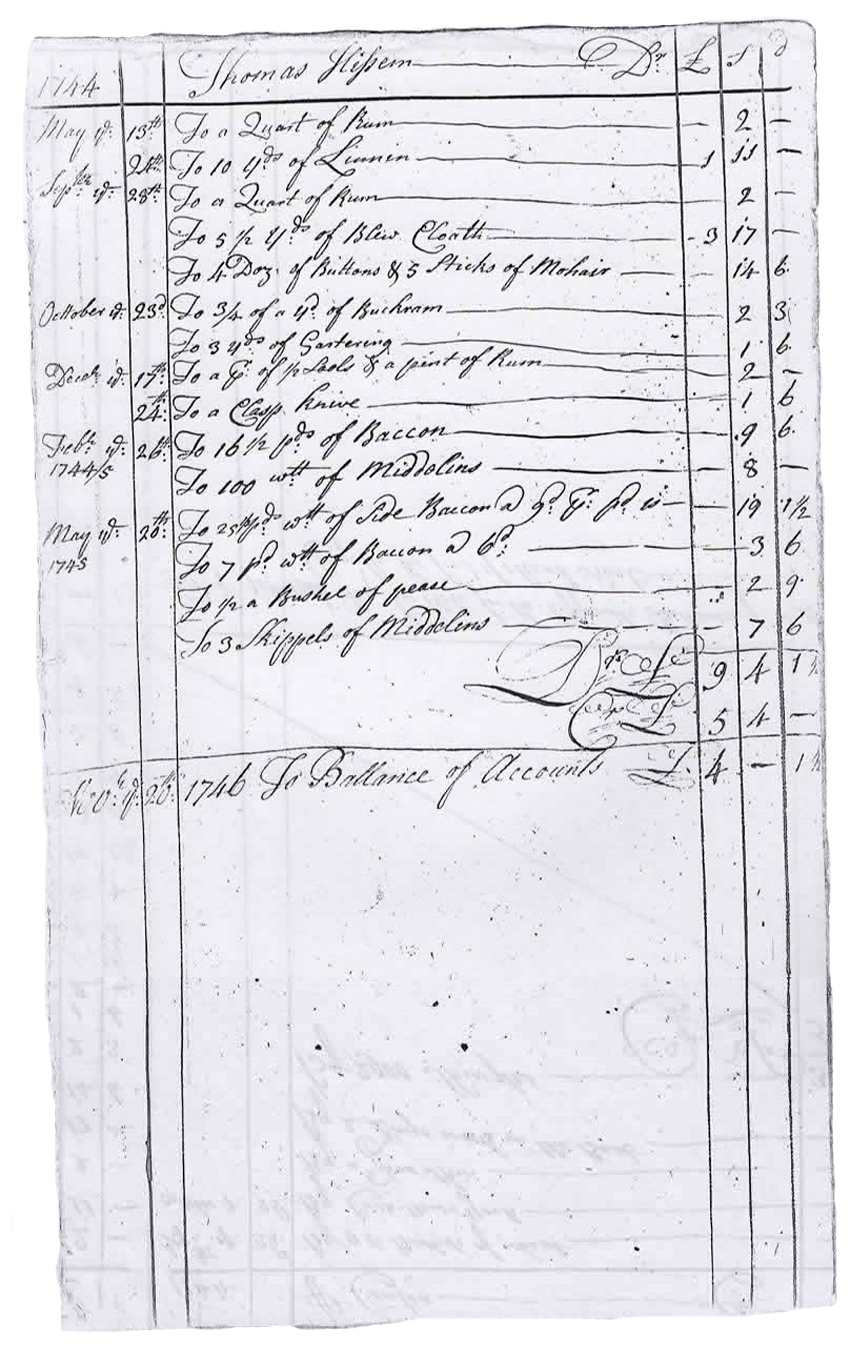 1744 Thomas Hissem Dr £ s d
May ye 13th To a Quart of Rum — 2 —
24th To 10 yds of Linnin 1 11 —
Septbr ye 28th To a Quart of Rum — 2 —
To 5 1/2 yds of Blew Cloath 3 17 —
To 4 Doz of Buttons & 5 Sticks of Mohair — 14 6
October ye 23d To 3/4 of a yd of Buckram — 2 3
To 3 yds of Gartering — 1 6
Decbr ye 17th To a pr of & a pint of Rum — 2 —
24th To a Clasp Knive — 1 6
Febr ye 26th To 16 1/2 pds of Baccon — 9 6
1744/5
To 100 wtt of Middolins — 8 —
May ye 20th To 25 1/2 pds wtt of Side Baccon a 9d pr pd is — 19 1 1/2
1745
To 7 pd wtt of Baccon a 6d — 3 6
To 1/2 a Bushel of pease 2 9
To 3 Skippels of Middolins — 7 6
Dr £ 9 4 1 1/2
Cr £ 5 4 —
Novbr ye 26th 1746 To Ballance of Accounts £ 4 — 1 1/2